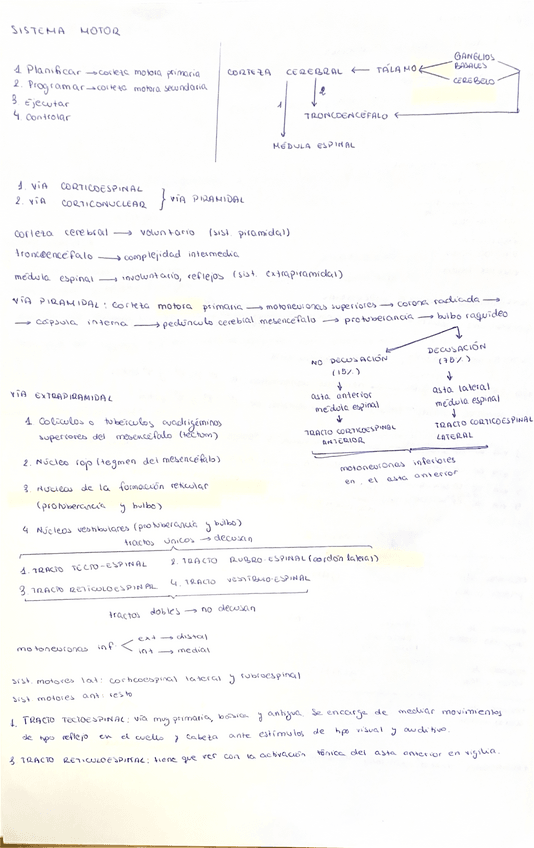 SISTEMA MOTOR
1 Planificar → corteza motora primaria
2. Programar → corteza motora secundaria
3 Ejecutar
4 Controlar
CORTEZA CEREBRAL ← TÁLAMO
GANGLIOS
BASALES
CEREBELO
1
2
TRONCOENCÉFALO
MÉDULA ESPINAL
1. VÍA CORTICOESPINAL
2. VÍA CORTICONUCLEAR
VÍA PIRAMIDAL
corteza cerebral → voluntario (sist. piramidal)
troncoencéfalo → complejidad intermedia
médula espinal → involuntario, reflejos (sist. extrapiramidal)
VÍA PIRAMIDAL: corteza motora primaria → motoneuronas superiores → corona radiada →
→ cápsula interna → pedúnculo cerebral mesencéfalo → protuberancia → bulbo raquídeo
NO DECUSACIÓN
(15%)
↓
asta anterior
médula espinal
↓
TRACTO CORTICOESPINAL
ANTERIOR
DECUSACIÓN
(75%)
↓
asta lateral
médula espinal
↓
TRACTO CORTICOESPINAL
LATERAL
motoneuronas inferiores
en el asta anterior
VÍA EXTRAPIRAMIDAL
1. Colículos o tubérculos cuadrigéminos
superiores del mesencéfalo (tectum)
2. Núcleo rojo (tegmen del mesencéfalo)
3 Núcleos de la formación reticular
(protuberancia y bulbo)
4 Núcleos vestibulares (protuberancia y bulbo)
tractos únicos → decusan
1. TRACTO TECTO-ESPINAL 2. TRACTO RUBRO-ESPINAL (cordón lateral)
3. TRACTO RETICULOESPINAL 4. TRACTO VESTÍBULO-ESPINAL
tractos dobles → no decusan
motoneuronas inf
ext → distal
int → medial
sist. motores lat: corticoespinal lateral y rubroespinal
sist motores ant: resto
1. TRACTO TECTOESPINAL: vía muy primaria, básica y antigua. Se encarga de mediar movimientos
de tipo reflejo en el cuello y cabeza ante estímulos de tipo visual y auditivo.
3 TRACTO RETICULOESPINAL: tiene que ver con la activación tónica del asta anterior en vigilia.